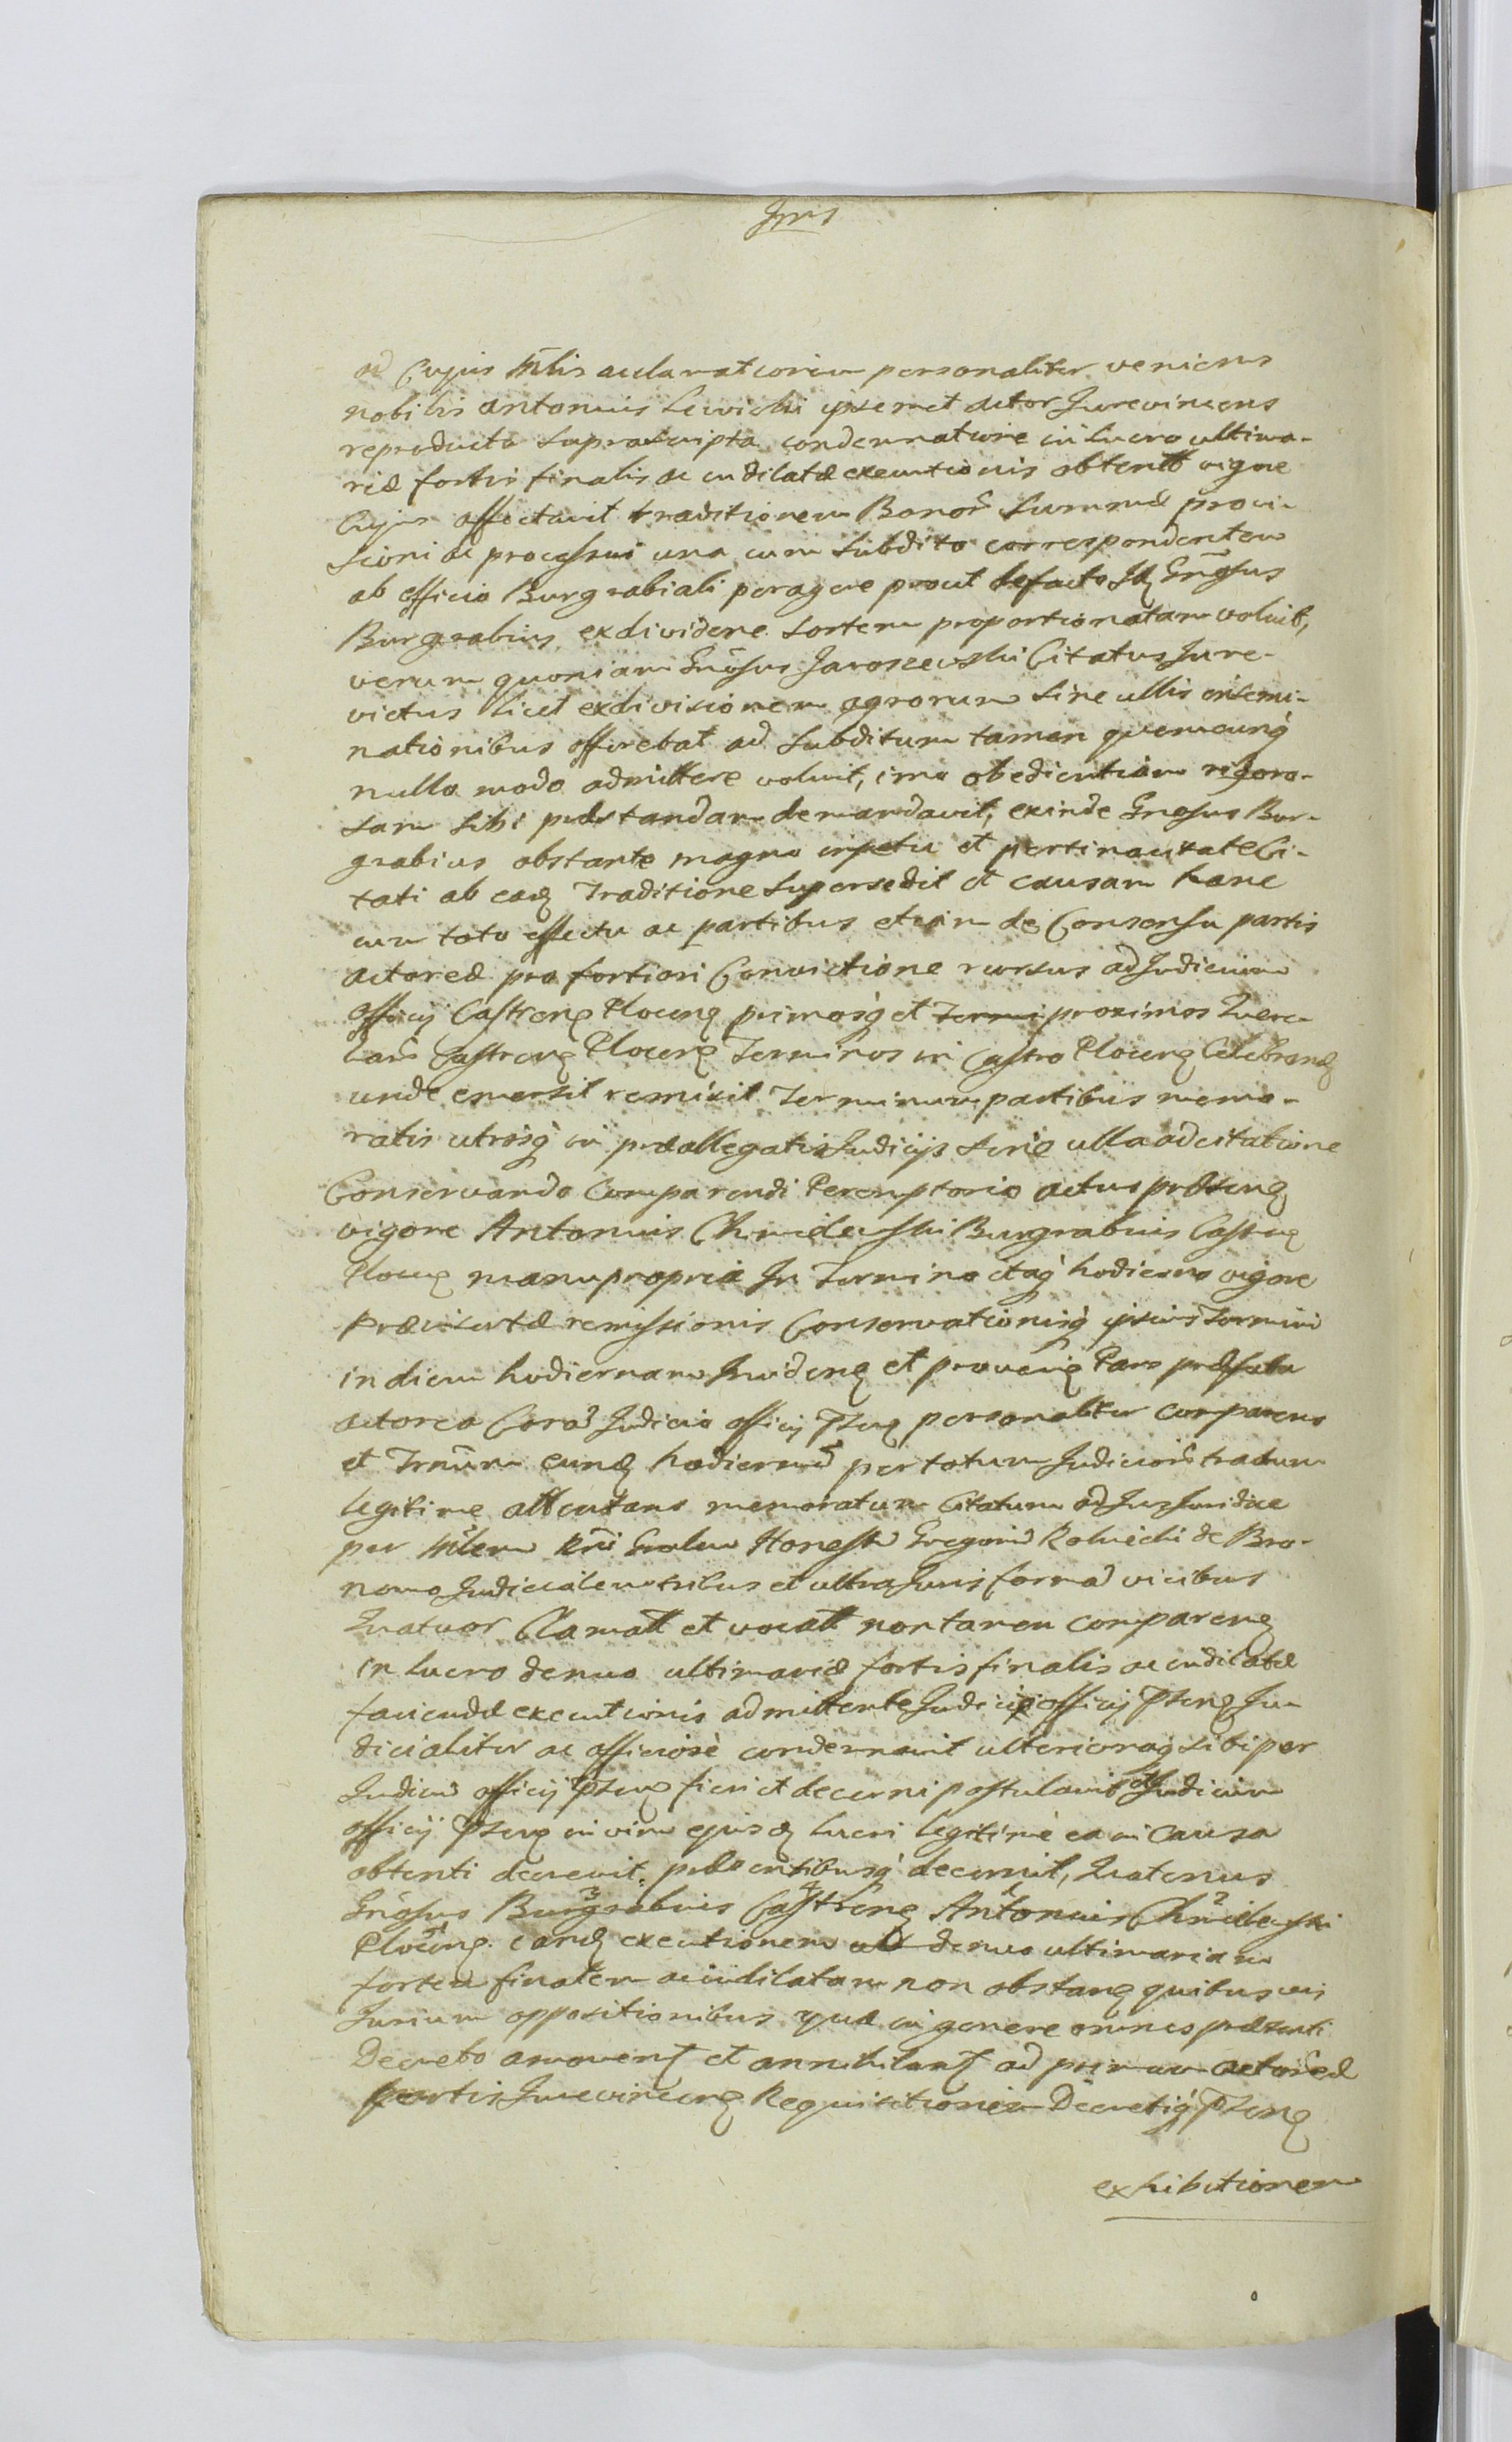 ad Cujus Mlis acclamationem personaliter veniens
nobilis Antonius Lewicki ipsemet Actor Jurevincens
reproducta suprascripta condemnatione in lucro ultima-
riæ fortis finalis ac indilatæ executionis obtento vigore
Cujus affectavit traditionem Bonor̃ summæ provi-
sioni ac processui una cum subdito correspondentem
ab officio Burgrabiali peragere prout defacto Idq Gñosus
Burgrabius exdividere sortem proportionatam voluit,
verum quoniam Gñosus Jaroszewski Citatus Jure-
victus licet exdivisionem agrorum sine ullis insemi-
nationibus offerebat ad subditum tamen quemcunq́
nullo modo admittere voluit, imo obedientiam rigoro-
sam sibi præstandam demandavit, exinde Gnosus Bur-
grabius obstante magno impetu et pertinacitate Ci-
tati ab eadq Traditione supersedit et causam hanc
cum toto effectu ac partibus etiam de Consensu partis
actoreæ pro fortiori Convictione rursus ad Judicium
officij Castrenq Plocenq primosq́ et Termi proximos Quere-
lar̃ Castrenq Plocenq Terminos in Castro Plocenq Celebrandq
unde emersit remisit Terminum partibus memo-
ratis utrisq́ in præallegatis Judicijs sine ulla adcitatione
Conservando Comparendi Peremptorio actus præsenq
vigore Antonius Chmielewski Burgrabius Castrenq
Plocenq manupropria In Termino itaq́ hodierno vigore
Præinsertæ remissionis Conservationisq́ ipsius Termini
in diem hodiernam Incidenq et provenienq Pars præfata
actorea Corã Judicio officij Pzenq personaliter comparens
et Trm̃um eundq hodiernũ per totum Judicior̃ tractum
legitime attentans memoratum Citatum ad Jus Juridice
per Mlem Rñi Gralem Honestũ Gregoriũ Rolnicki de Bro-
nowo Judicialem tribus et ultra Juris formã vicibus
Quatuor Clamatt et vocatt non tamen comparenq
in lucro denuo ultimariæ fortis finalis ac indilatæ
faciendæ executionis admittente Judicio officij Pzenq Ju-
dicialiter ac officiosè condemnavit ulteriorạq sibi per
Judiciũ officij Pzenq fieri et decerni postulavit et Judicium
officij Pzenq in vim ejusdq lucri legitimè ea in causa
obtenti decrevit, præsentibusq́ decernit, Quatenus
Gñosus Burgrabius Castrenq Antonius Chmielewski
Plocenq eandq executionem denuo ultimariam
fortem finalem ac indilatam non obstanq quibusvis
Jurium oppositionibus quæ in genere omnes præsenti
Decreto amovent et annihilant ad primam actoreæ
partis Jurevincenq Requisitionem Decretiq́ Pzenq
exhibitionem